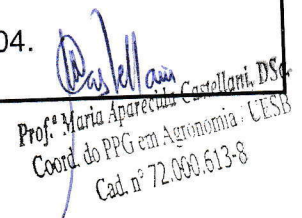 04.
Castellani
Prof.ª Maria Aparecida Castellani, DSc.
Coord. do PPG em Agronomia / UESB
Cad. nº 72.000.613-8